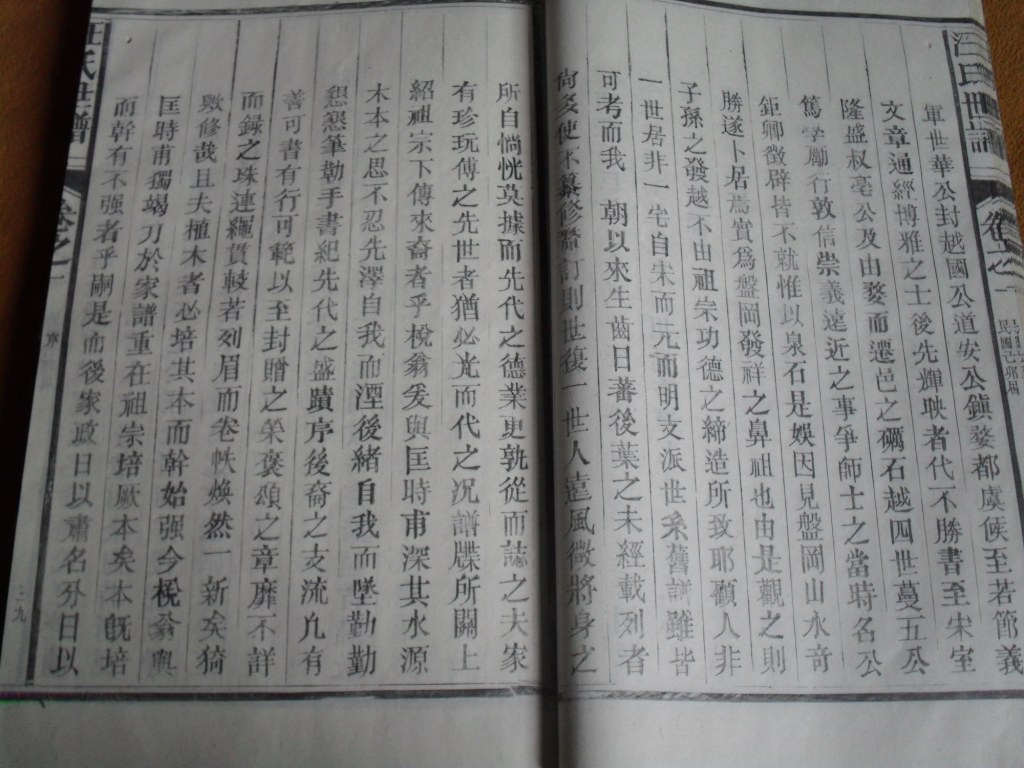 汪氏世譜
卷之一
民國己卯屆
軍世華公封越國公道安公鎭婺都虞候至若節義
文章通經博雅之士後先輝映者代不勝書至宋室
隆盛叔亳公及由婺而遷邑之礪石越四世蔓五公
篤學勵行敦信崇義遠近之事爭師士之當時名公
鉅卿徵辟皆不就惟以泉石是娛因見盤岡山水奇
勝遂卜居焉實爲盤岡發祥之鼻祖也由是觀之則
子孫之發越不由祖宗功德之締造所致耶顧人非
一世居非一宅自宋而元而明支派世系舊譜雖皆
可考而我 朝以來生齒日蕃後葉之未經載列者
尙多使不纂修釐訂則世復一世人遠風微將身之
所自惝恍莫據而先代之德業更孰從而誌之夫家
有珍玩傳之先世者猶必光而代之况譜牒所關上
紹祖宗下傳來裔者乎梲翁爰與匡時甫深其水源
木本之思不忍先澤自我而湮後緒自我而墜勤勤
懇懇筆勒手書紀先代之盛蹟序後裔之支流凡有
善可書有行可範以至封贈之榮褒頌之章靡不詳
而録之珠連繩貫較若列眉而卷帙煥然一新矣猗
歟修哉且夫植木者必培其本而幹始强今梲翁與
匡時甫獨竭力於家譜重在祖宗培厥本矣本旣培
而幹有不强者乎嗣是而後家政日以肅名分日以
汪氏世譜
卷之一
序
二九